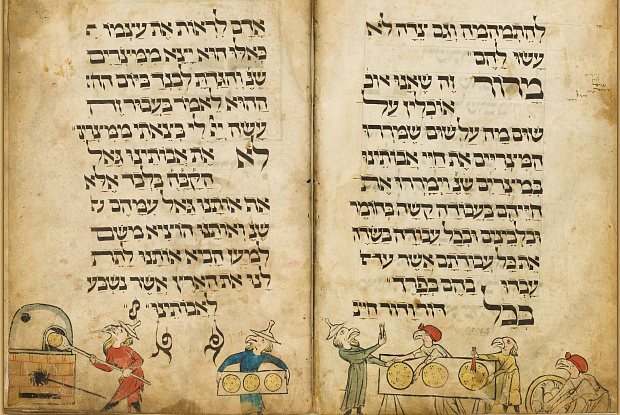 להתמהמה וגם צדה לא
עשו להם
מרור זה שאנו אוכ
אוכלין על
שום מה על שום שמררו
המצריים את חיי אבותינו
במצריים שנ וימררו את
חייהם בעבודה קשה בחומר
ובלבנים ובכל עבודה בשדה
את כל עבודתם אשר
עבדו בהם בפרך
בכל דור ודור חייב
אדם לראות את עצמו
כאלו הוא יצא ממצרים
שנ והגדת לבנך ביום ההו
ההוא לאמר בעבור זה
עשה יי לי בצאתי ממצרים
לא את אבותינו גאל
הקבה בלבד אלא
את אותנו גאל עמהם
שנ ואותנו הוציא משם
למען הביא אותנו לתת
לנו את הארץ אשר נשבע
לאבותינו